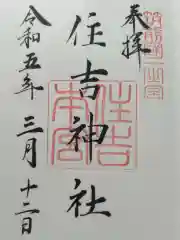 筑前國一之宮
奉拝
住吉神社
住吉
本宮
令和五年三月十二日